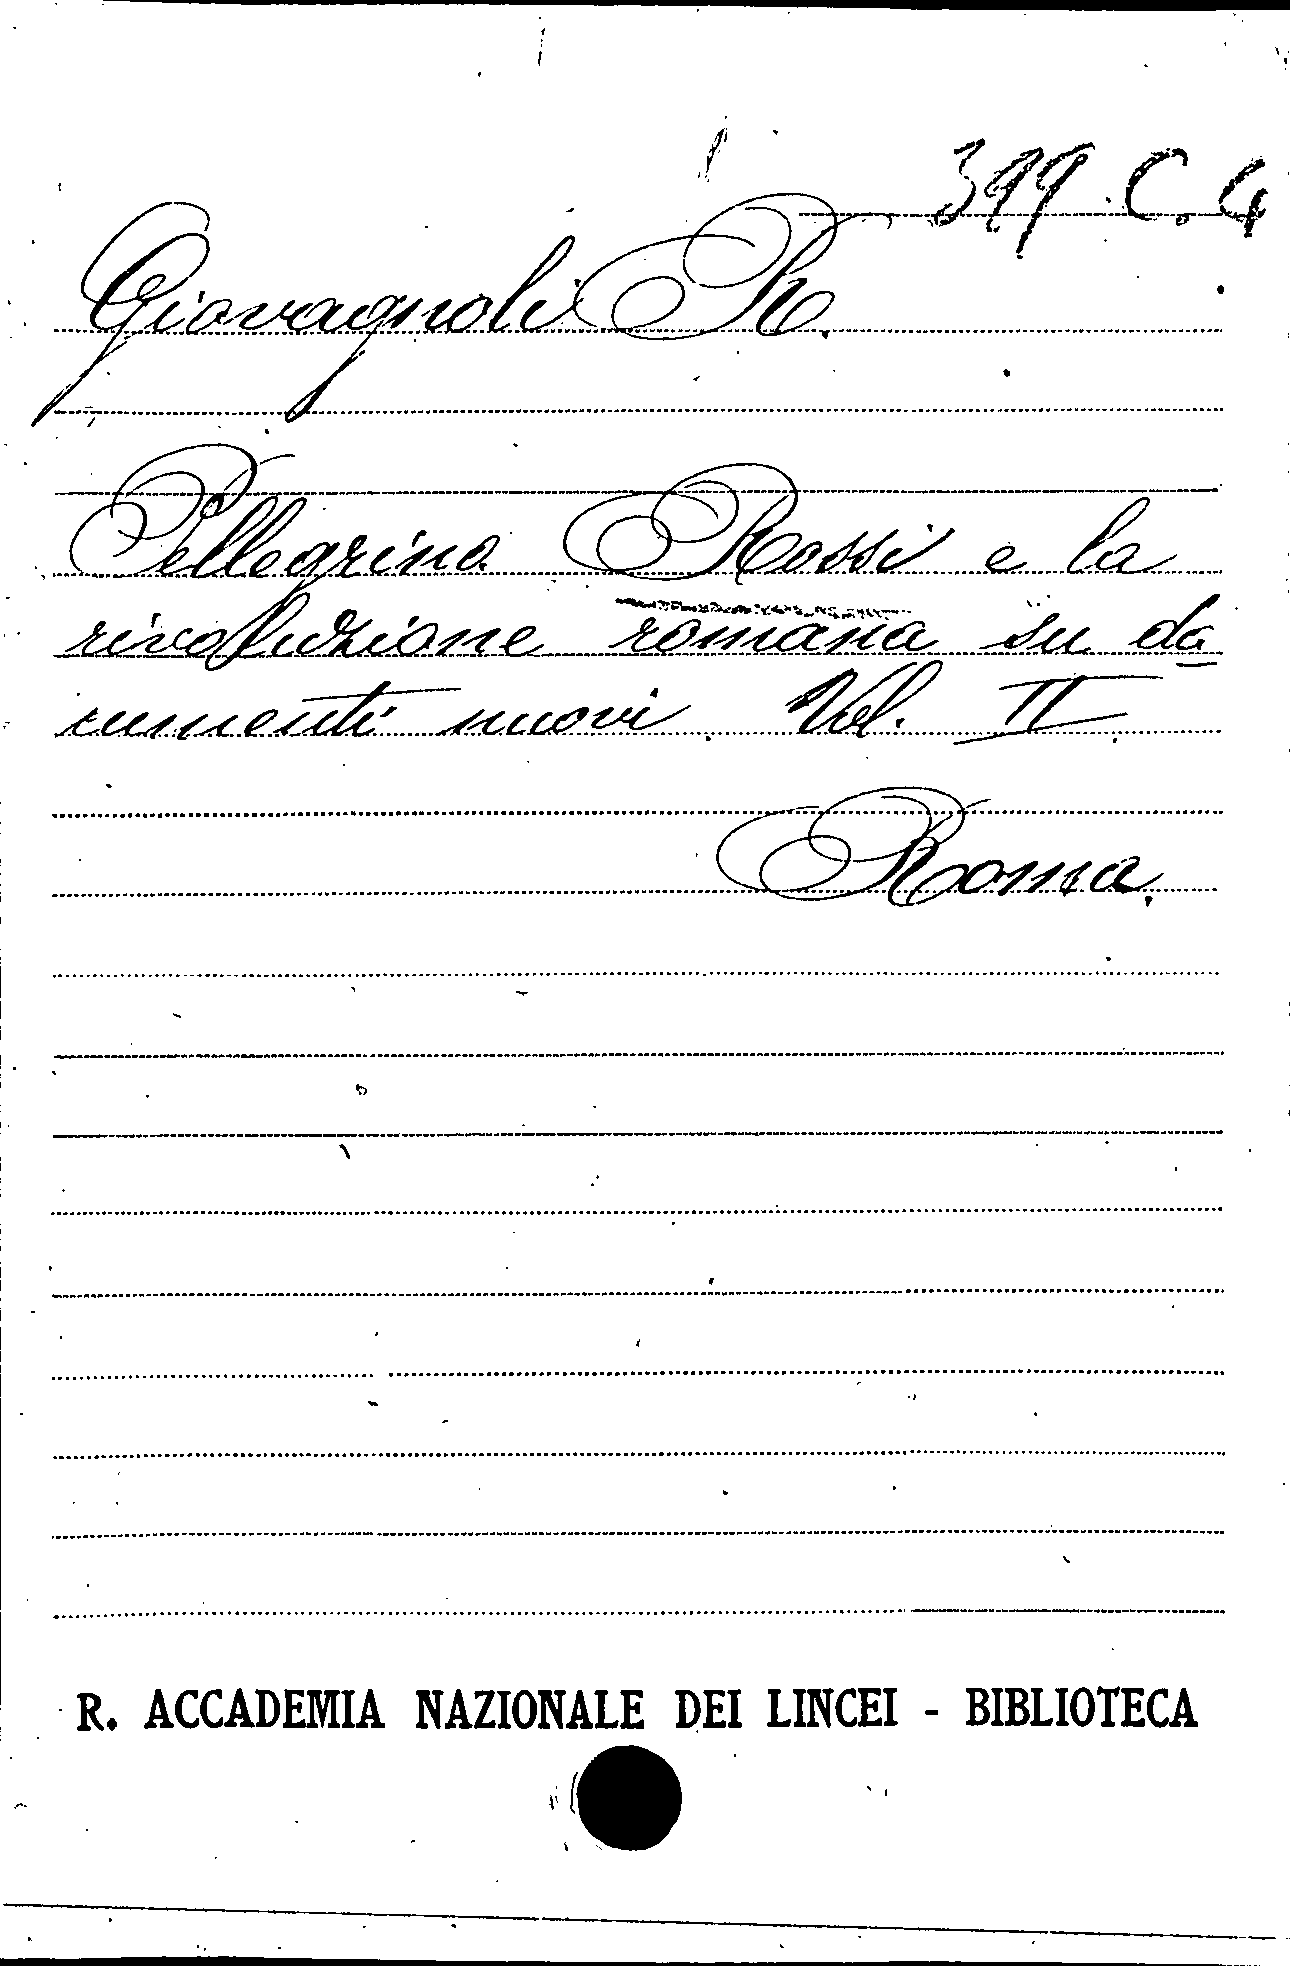 399. C. 4
Giovagnoli R.
Pellegrino Rossi e la
rivoluzione romana su do
cumenti nuovi. Vol. II
Roma.
R. ACCADEMIA NAZIONALE DEI LINCEI - BIBLIOTECA